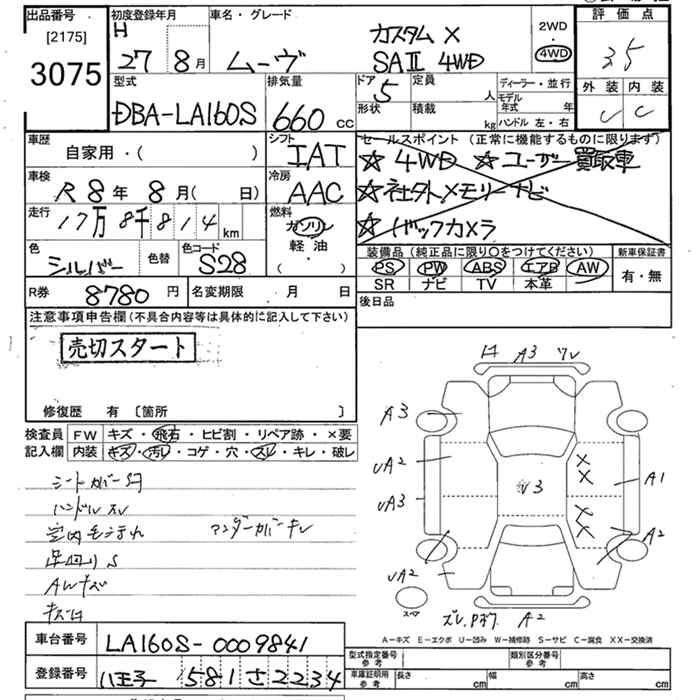 出品番号
[2175]
3075
初度登録年月
H
27 年 8月
車名・グレード
ムーヴ
カスタム X
SAⅡ 4WD
2WD
・
4WD
評価点
3.5
外装 内装
C
型式
DBA-LA160S
排気量
660 cc
ドア
5
定員
人
形状
積載
kg
ディーラー・並行
モデル年式 年
ハンドル 左・右
車歴
自家用・( )
シフト
IAT
車検
R8年 8月( 日)
冷房
AAC
走行
17万8千814 km
燃料
ガソリン
軽油
( ・ )
色
シルバー
色替
色コード
S28
R券
8780 円
名変期限 月 日
セールスポイント (正常に機能するものに限ります)
☆ 4WD ☆ ユーザー買取車
☆ 社外メモリーナビ
☆ バックカメラ
装備品(純正品に限り○をつけてください)
PS PW ABS エアB AW
SR ナビ TV 本革
新車保証書
有・無
後日品
注意事項申告欄(不具合内容等は具体的に記入して下さい)
売切スタート
修復歴 有 〔箇所 〕
検査員
記入欄
FW キズ・飛石・ヒビ割・リペア跡・×要
内装 キズ・汚レ・コゲ・穴・スレ・キレ・破レ
シートカバーS付
ハンドルスレ
アンダーカバーキレ
足回りS
AWキズ
A3
A3
UA2
UA3
UA2
A1
A2
A2
スペア
A-キズ E-エクボ U-凹み W-補修跡 S-サビ C-腐食 XX-交換済
車台番号
LA160S-0009841
登録番号
八王子 581 さ 2234
型式指定番号
参考
類別区分番号
参考
車庫証明用
参考
長さ cm
幅 cm
高さ cm